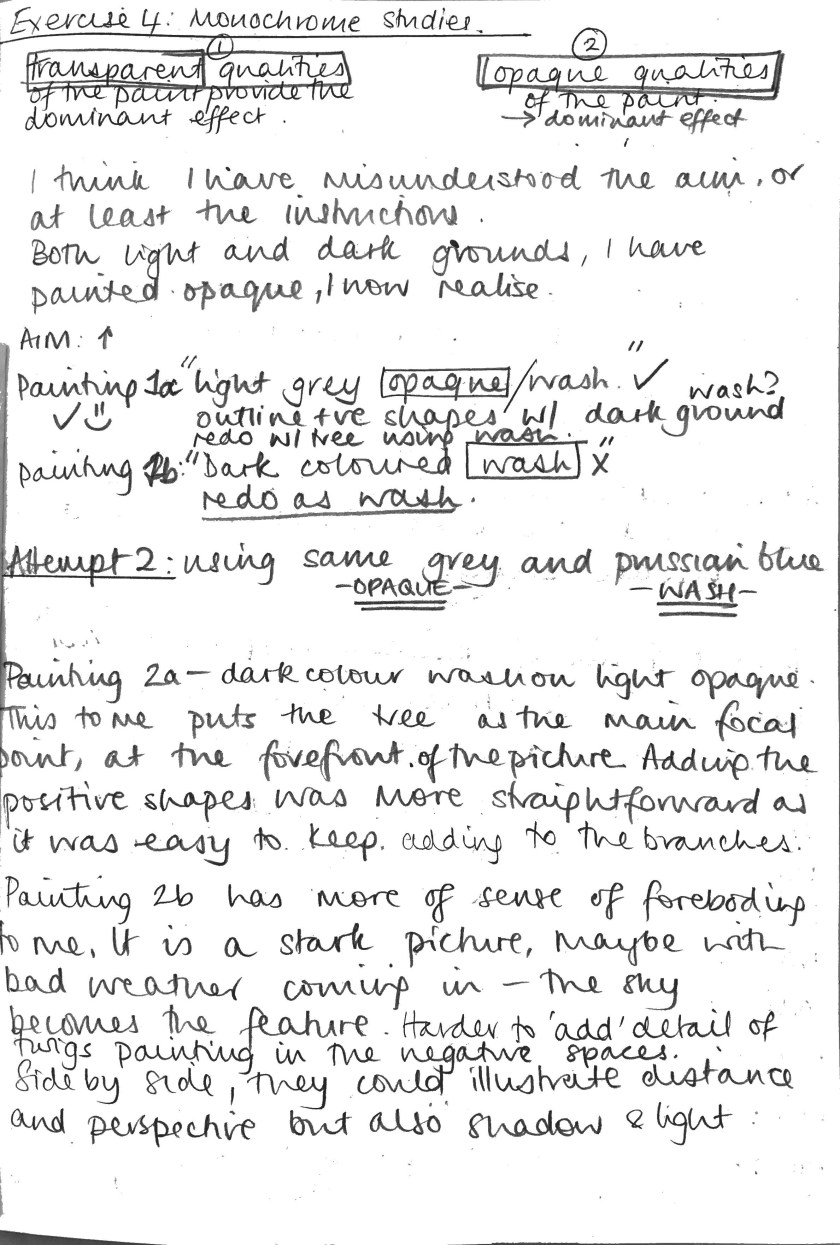 Exercise 4: Monochrome studies.
① ②
transparent qualities
of the paint provide the
dominant effect.
opaque qualities
of the paint.
→ dominant effect
I think I have misunderstood the aim, or
at least the instructions.
Both light and dark grounds, I have
painted opaque, I now realise.
AIM: ↑
Painting 1a "light grey opaque/wash." ✓ wash?
✓ outline +ve shapes w/ dark ground
redo w/ tree using wash.
painting 1b: "Dark coloured wash" X
redo as wash.
Attempt 2: using same grey and prussian blue
-OPAQUE- -WASH-
Painting 2a – dark colour wash on light opaque.
This to me puts the tree as the main focal
point, at the forefront of the picture. Adding the
positive shapes was more straightforward as
it was easy to keep adding to the branches.
Painting 2b has more of sense of foreboding
to me. It is a stark picture, maybe with
bad weather coming in – the sky
becomes the feature. Harder to 'add' detail of
twigs painting in the negative spaces.
Side by side, they could illustrate distance
and perspective but also shadow & light.